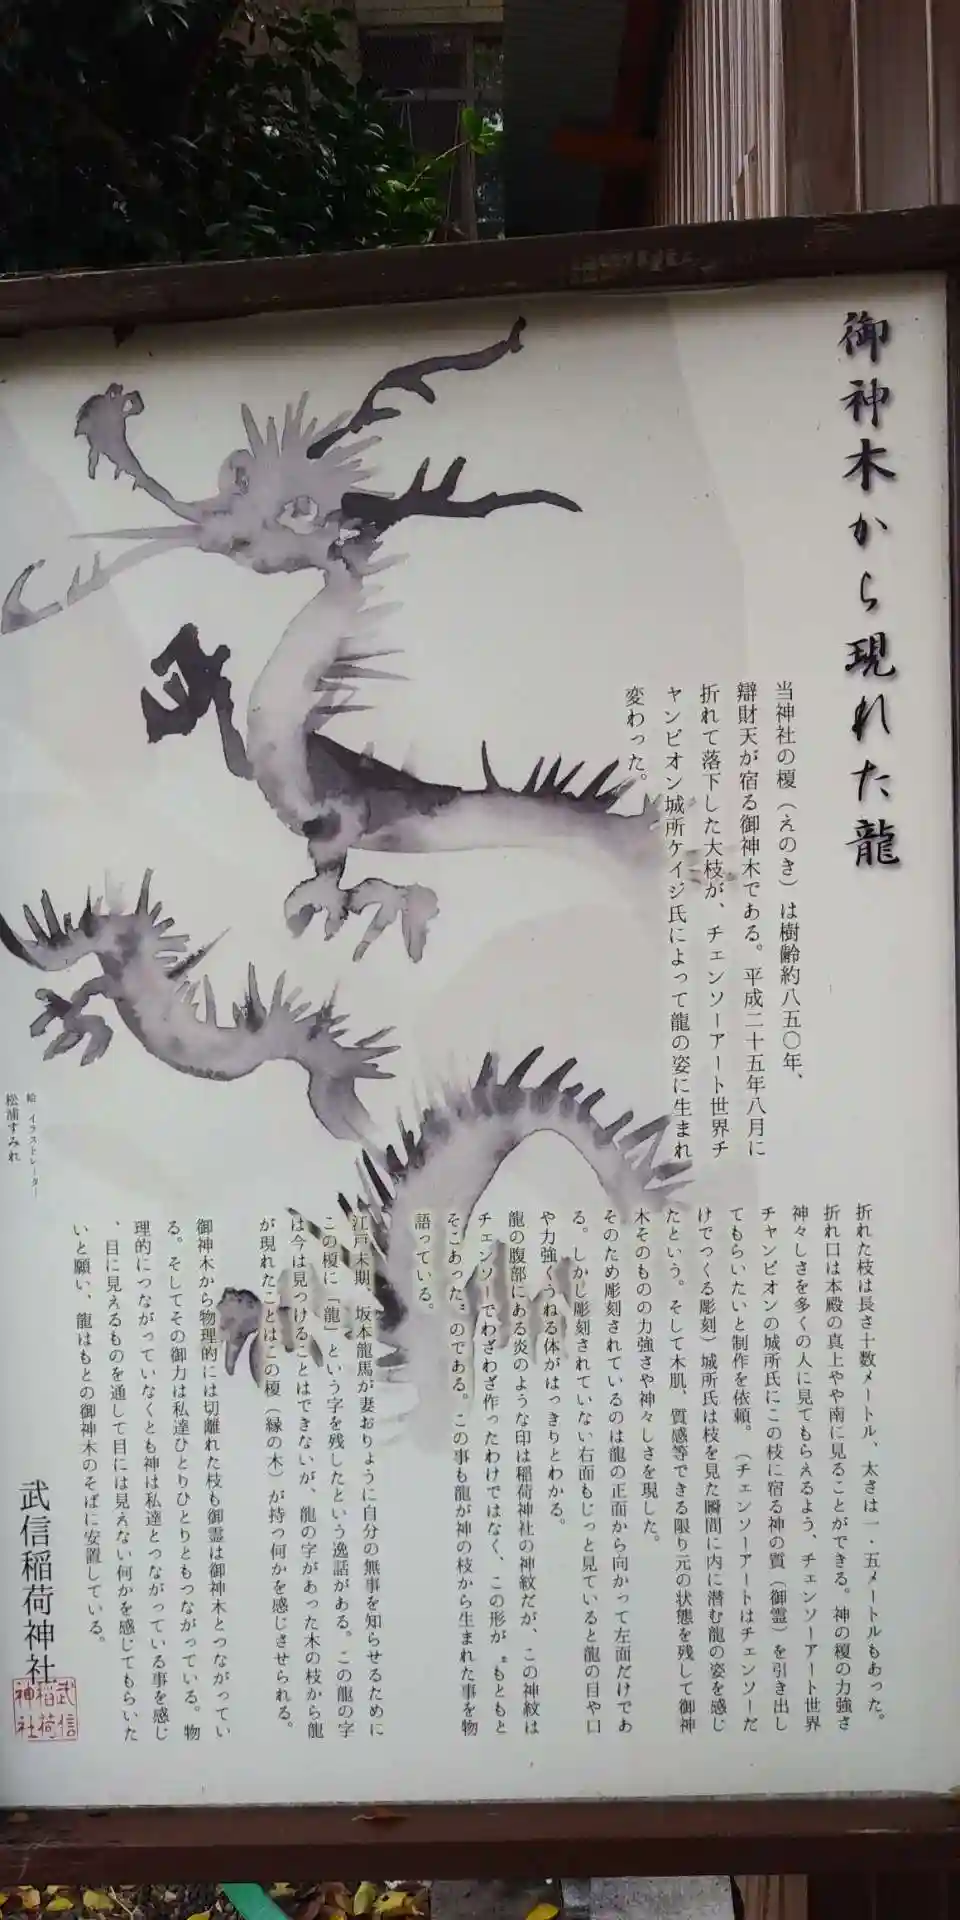 御神木から現れた龍
当神社の榎（えのき）は樹齢約八五〇年、
辯財天が宿る御神木である。平成二十五年八月に
折れて落下した大枝が、チェンソーアート世界チ
ャンピオン城所ケイジ氏によって龍の姿に生まれ
変わった。
折れた枝は長さ十数メートル、太さは一・五メートルもあった。
折れ口は本殿の真上やや南に見ることができる。神の榎の力強さ
神々しさを多くの人に見てもらえるよう、チェンソーアート世界
チャンピオンの城所氏にこの枝に宿る神の質（御霊）を引き出し
てもらいたいと制作を依頼。（チェンソーアートはチェンソーだ
けでつくる彫刻）城所氏は枝を見た瞬間に内に潜む龍の姿を感じ
たという。そして木肌、質感等できる限り元の状態を残して御神
木そのものの力強さや神々しさを現した。
そのため彫刻されているのは龍の正面から向かって左面だけであ
る。しかし彫刻されていない右面もじっと見ていると龍の目や口
や力強くうねる体がはっきりとわかる。
龍の腹部にある炎のような印は稲荷神社の神紋だが、この神紋は
チェンソーでわざわざ作ったわけではなく、この形が〝もともと
そこあった〟のである。この事も龍が神の枝から生まれた事を物
語っている。
江戸末期、坂本龍馬が妻おりょうに自分の無事を知らせるために
この榎に「龍」という字を残したという逸話がある。この龍の字
は今は見つけることはできないが、龍の字があった木の枝から龍
が現れたことはこの榎（縁の木）が持つ何かを感じさせられる。
御神木から物理的には切離れた枝も御霊は御神木とつながってい
る。そしてその御力は私達ひとりひとりともつながっている。物
理的につながっていなくとも神は私達とつながっている事を感じ
、目に見えるものを通して目には見えない何かを感じてもらいた
いと願い、龍はもとの御神木のそばに安置している。
武信稲荷神社
武信
稲荷
神社
絵 イラストレーター
松浦すみれ